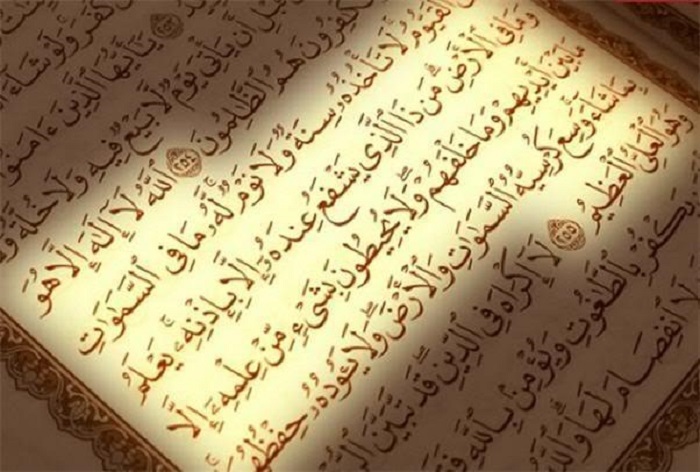 كَفَرَ وَلَوْ شَآءَ
٢٥٣ يَٰٓأَيُّهَا ٱلَّذِينَ ءَامَنُو
قَبْلِ أَن يَأْتِىَ يَوْمٌ لَّا بَيْعٌ فِيهِ وَلَا خُلَّةٌ وَ
كَٰفِرُونَ هُمُ ٱلظَّٰلِمُونَ ٢٥٤ ٱللَّهُ لَآ إِلَٰهَ إِلَّا هُوَ
ٱلْقَيُّومُ لَا تَأْخُذُهُۥ سِنَةٌ وَلَا نَوْمٌ لَّهُۥ مَا فِى ٱلسَّمَٰوَٰتِ
وَمَا فِى ٱلْأَرْضِ مَن ذَا ٱلَّذِى يَشْفَعُ عِندَهُۥٓ إِلَّا بِإِذْنِهِۦ يَعْلَمُ
مَا بَيْنَ أَيْدِيهِمْ وَمَا خَلْفَهُمْ وَلَا يُحِيطُونَ بِشَىْءٍ مِّنْ عِلْمِهِۦٓ إِلَّا
بِمَا شَآءَ وَسِعَ كُرْسِيُّهُ ٱلسَّمَٰوَٰتِ وَٱلْأَرْضَ وَلَا يَـُٔودُهُۥ حِفْظُهُ
وَهُوَ ٱلْعَلِىُّ ٱلْعَظِيمُ ٢٥٥ لَآ إِكْرَاهَ فِى ٱلدِّينِ قَد تَّبَيَّنَ
يَكْفُرْ بِٱلطَّٰغُوتِ وَيُؤْمِنۢ بِٱللَّهِ فَقَ
لَا ٱنفِصَامَ لَهَا وَٱللَّهُ